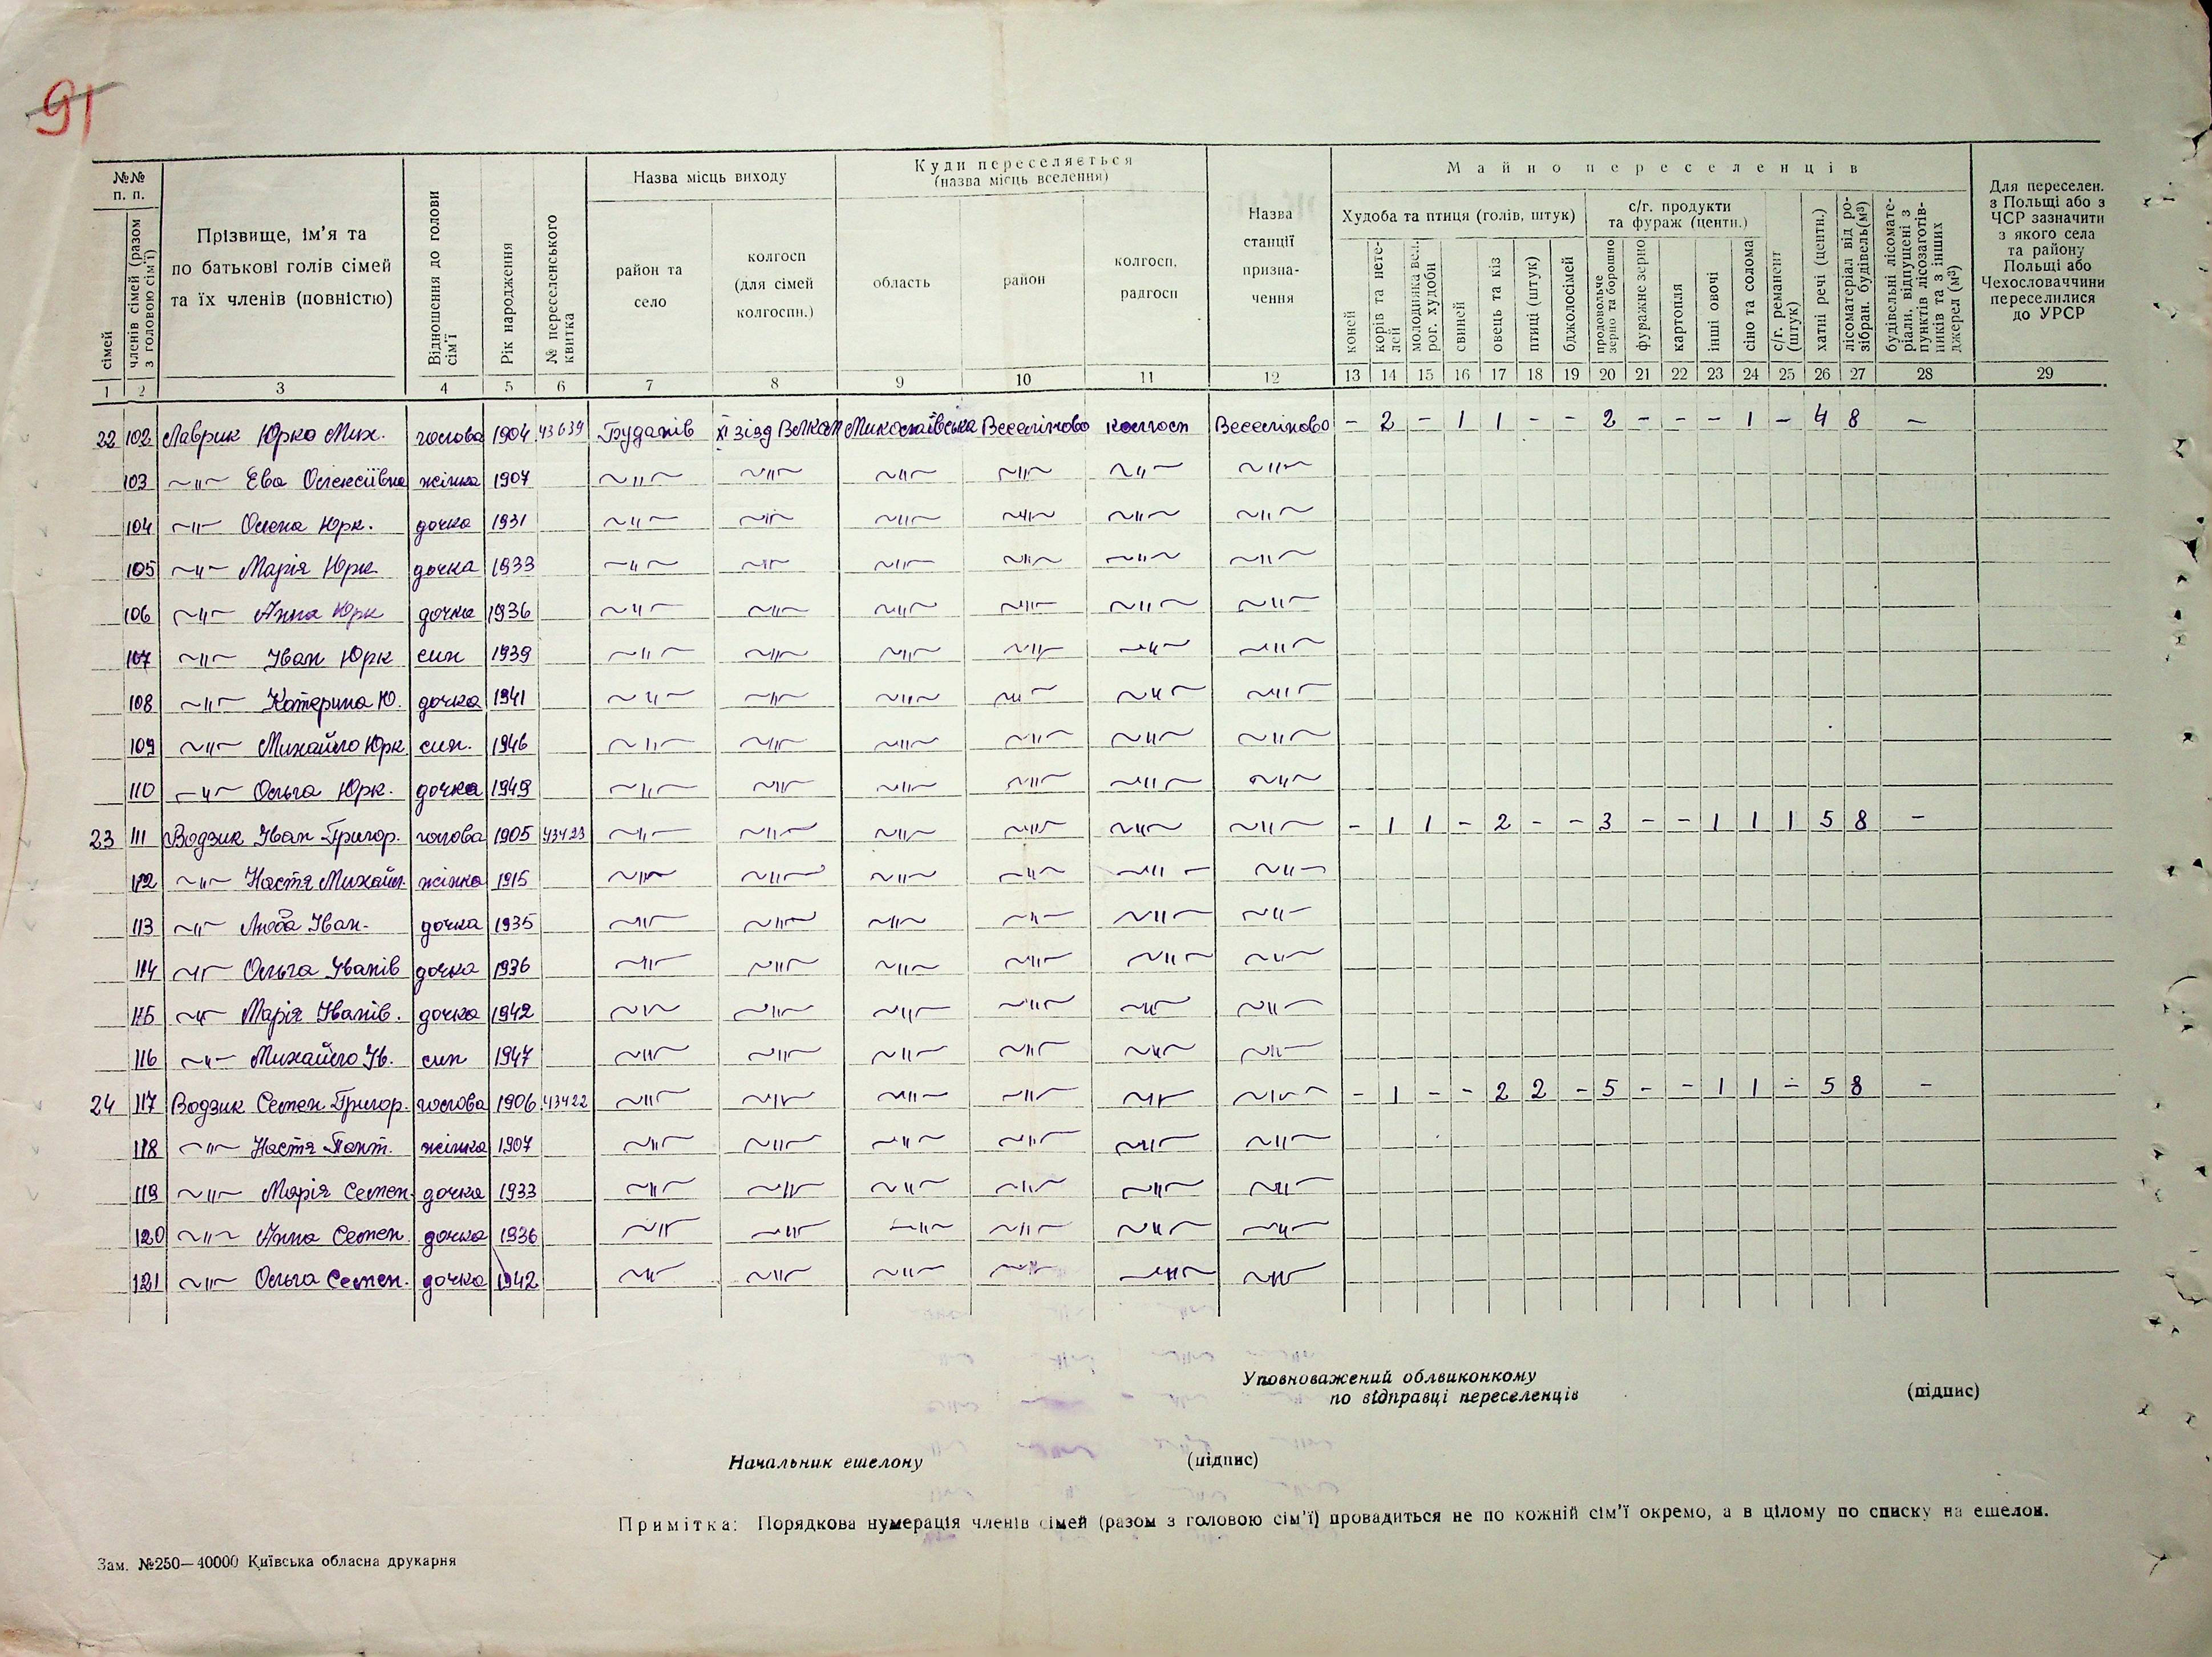 91
№№ п. п.
сімей
членів сімей (разом з головою сім'ї)
Прізвище, ім'я та по батькові голів сімей та їх членів (повністю)
Відношення до голови сім'ї
Рік народження
№ переселенського квитка
Назва місць виходу
район та село
колгосп (для сімей колгоспн.)
Куди переселяється (назва місць вселення)
область
район
колгосп, радгосп
Назва станції призна-чення
Майно переселенців
Худоба та птиця (голів, штук)
коней
корів та нете-лей
молодняка вел. рог. худоби
свиней
овець та кіз
птиці (штук)
бджолосімей
с/г. продукти та фураж (центн.)
продовольче зерно та борошно
фуражне зерно
картопля
інші овочі
сіно та солома
с/г. реманент (штук)
хатні речі (центн.)
лісоматеріал від ро-зібран. будівель(м³)
будівельні лісомате-ріали, відпущені з пунктів лісозаготів-ників та з інших джерел (м³)
Для переселен. з Польщі або з ЧСР зазначити з якого села та району Польщі або Чехословаччини переселилися до УРСР
1 2 3 4 5 6 7 8 9 10 11 12 13 14 15 16 17 18 19 20 21 22 23 24 25 26 27 28 29
22 102 Лаврик Юрко Мих. голова 1904 43639 Буданів XI зїзд ВЛКСМ Миколаївська Веселіново колгосп Веселіново - 2 - 1 1 - - 2 - - - 1 - 4 8 -
103 ~"~ Ева Олексіївна жінка 1907 ~"~ ~"~ ~"~ ~"~ ~"~ ~"~
104 ~"~ Олена Юрк. дочка 1931 ~"~ ~"~ ~"~ ~"~ ~"~ ~"~
105 ~"~ Марія Юрк дочка 1933 ~"~ ~"~ ~"~ ~"~ ~"~ ~"~
106 ~"~ Анна Юрк дочка 1936 ~"~ ~"~ ~"~ ~"~ ~"~ ~"~
107 ~"~ Іван Юрк син 1939 ~"~ ~"~ ~"~ ~"~ ~"~ ~"~
108 ~"~ Катерина Ю. дочка 1941 ~"~ ~"~ ~"~ ~"~ ~"~ ~"~
109 ~"~ Михайло Юрк син. 1946 ~"~ ~"~ ~"~ ~"~ ~"~ ~"~
110 ~"~ Ольга Юрк. дочка 1949 ~"~ ~"~ ~"~ ~"~ ~"~ ~"~
23 111 Водзик Іван Григор. голова 1905 43423 ~"~ ~"~ ~"~ ~"~ ~"~ ~"~ - 1 1 - 2 - - 3 - - 1 1 1 5 8 -
112 ~"~ Настя Михайл. жінка 1915 ~"~ ~"~ ~"~ ~"~ ~"~ ~"~
113 ~"~ Люба Іван. дочка 1935 ~"~ ~"~ ~"~ ~"~ ~"~ ~"~
114 ~"~ Ольга Іванів дочка 1936 ~"~ ~"~ ~"~ ~"~ ~"~ ~"~
115 ~"~ Марія Іванів. дочка 1942 ~"~ ~"~ ~"~ ~"~ ~"~ ~"~
116 ~"~ Михайло Ів. син 1947 ~"~ ~"~ ~"~ ~"~ ~"~ ~"~
24 117 Водзик Семен Григор. голова 1906 43422 ~"~ ~"~ ~"~ ~"~ ~"~ ~"~ - 1 - - 2 2 - 5 - - 1 1 - 5 8 -
118 ~"~ Настя Пант. жінка 1907 ~"~ ~"~ ~"~ ~"~ ~"~ ~"~
119 ~"~ Марія Семен. дочка 1933 ~"~ ~"~ ~"~ ~"~ ~"~ ~"~
120 ~"~ Анна Семен. дочка 1936 ~"~ ~"~ ~"~ ~"~ ~"~ ~"~
121 ~"~ Ольга Семен. дочка 1942 ~"~ ~"~ ~"~ ~"~ ~"~ ~"~
Уповноважений облвиконкому
по відправці переселенців (підпис)
Начальник ешелону (підпис)
Примітка: Порядкова нумерація членів сімей (разом з головою сім'ї) провадиться не по кожній сім'ї окремо, а в цілому по списку на ешелон.
Зам. №250—40000 Київська обласна друкарня